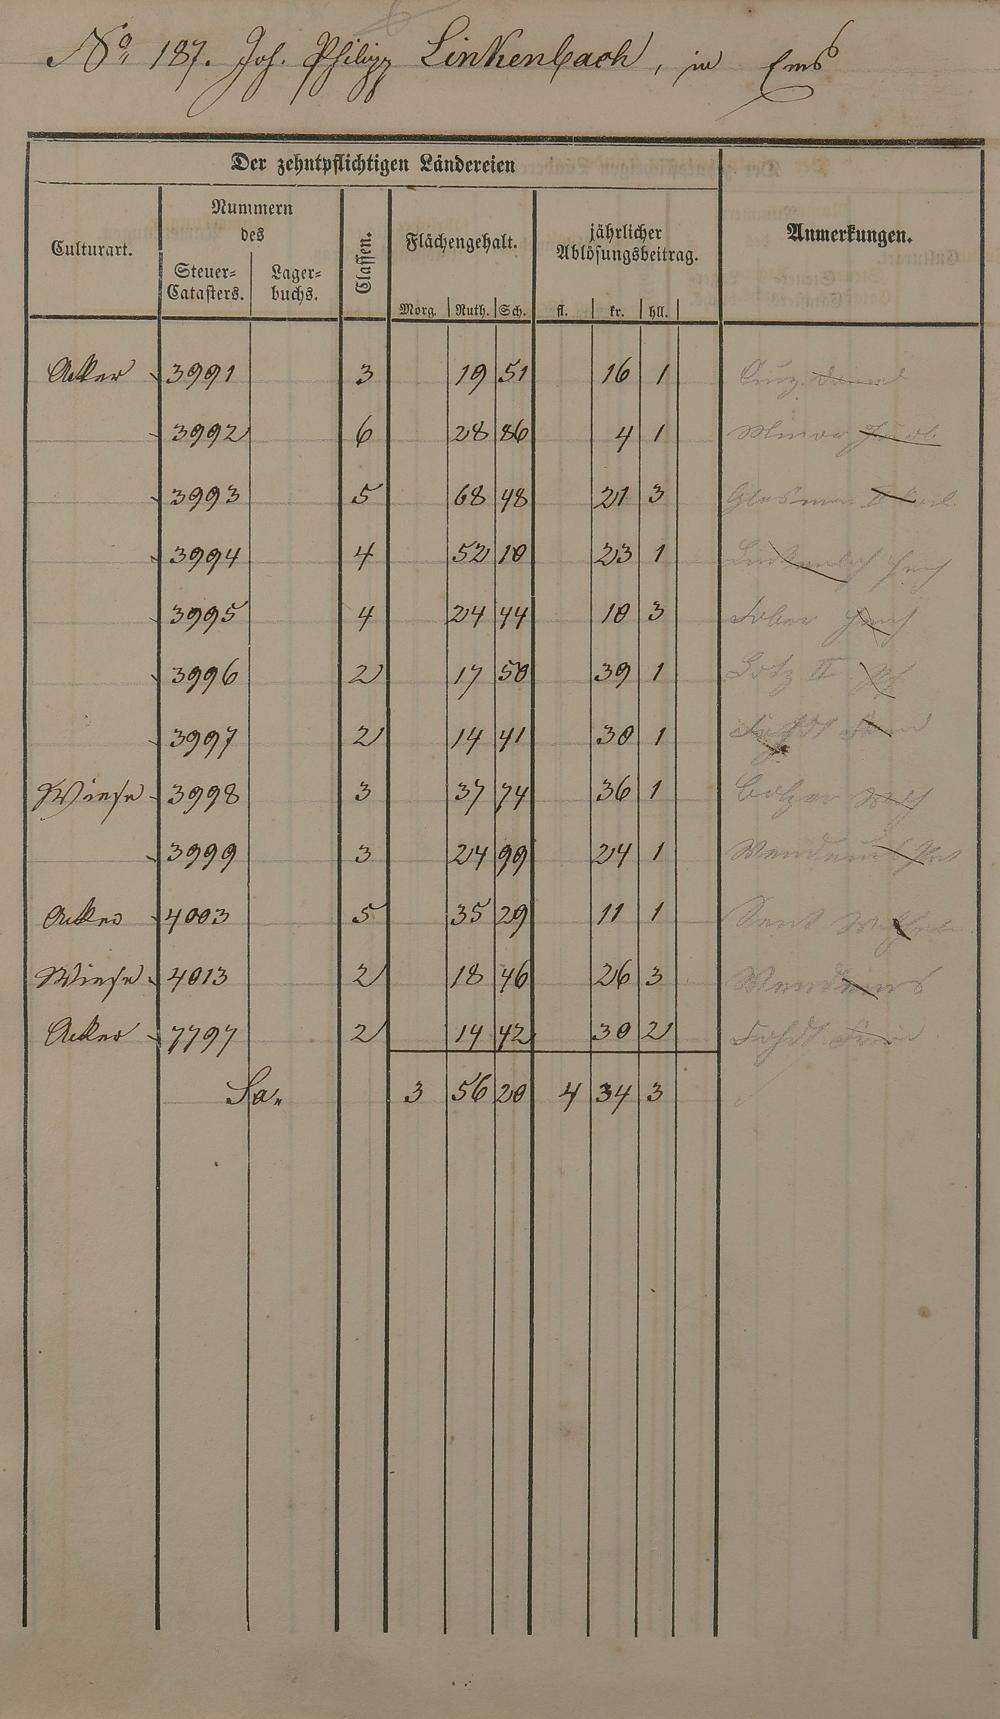 No. 187. Joh. Philipp Linkenbach, in Ems
Der zehntpflichtigen Ländereien
Culturart. Nummern des Classen. Flächengehalt. jährlicher Ablösungsbeitrag. Anmerkungen.
Steuer-Catasters. Lager-buchs. Morg. Ruth. Sch. fl. kr. hll.
Acker 3991 3 19 51 16 1
3992 6 28 86 4 1
3993 5 68 48 21 3
3994 4 52 10 23 1 Linkenbach
3995 4 24 44 10 3 Faber
3996 2 17 50 39 1 Götz II
3997 2 14 41 30 1
Wiese 3998 3 37 74 36 1
3999 3 24 99 24 1
Acker 4003 5 35 29 11 1
Wiese 4013 2 18 46 26 3
Acker 7797 2 14 42 30 2
Sa. 3 56 20 4 34 3